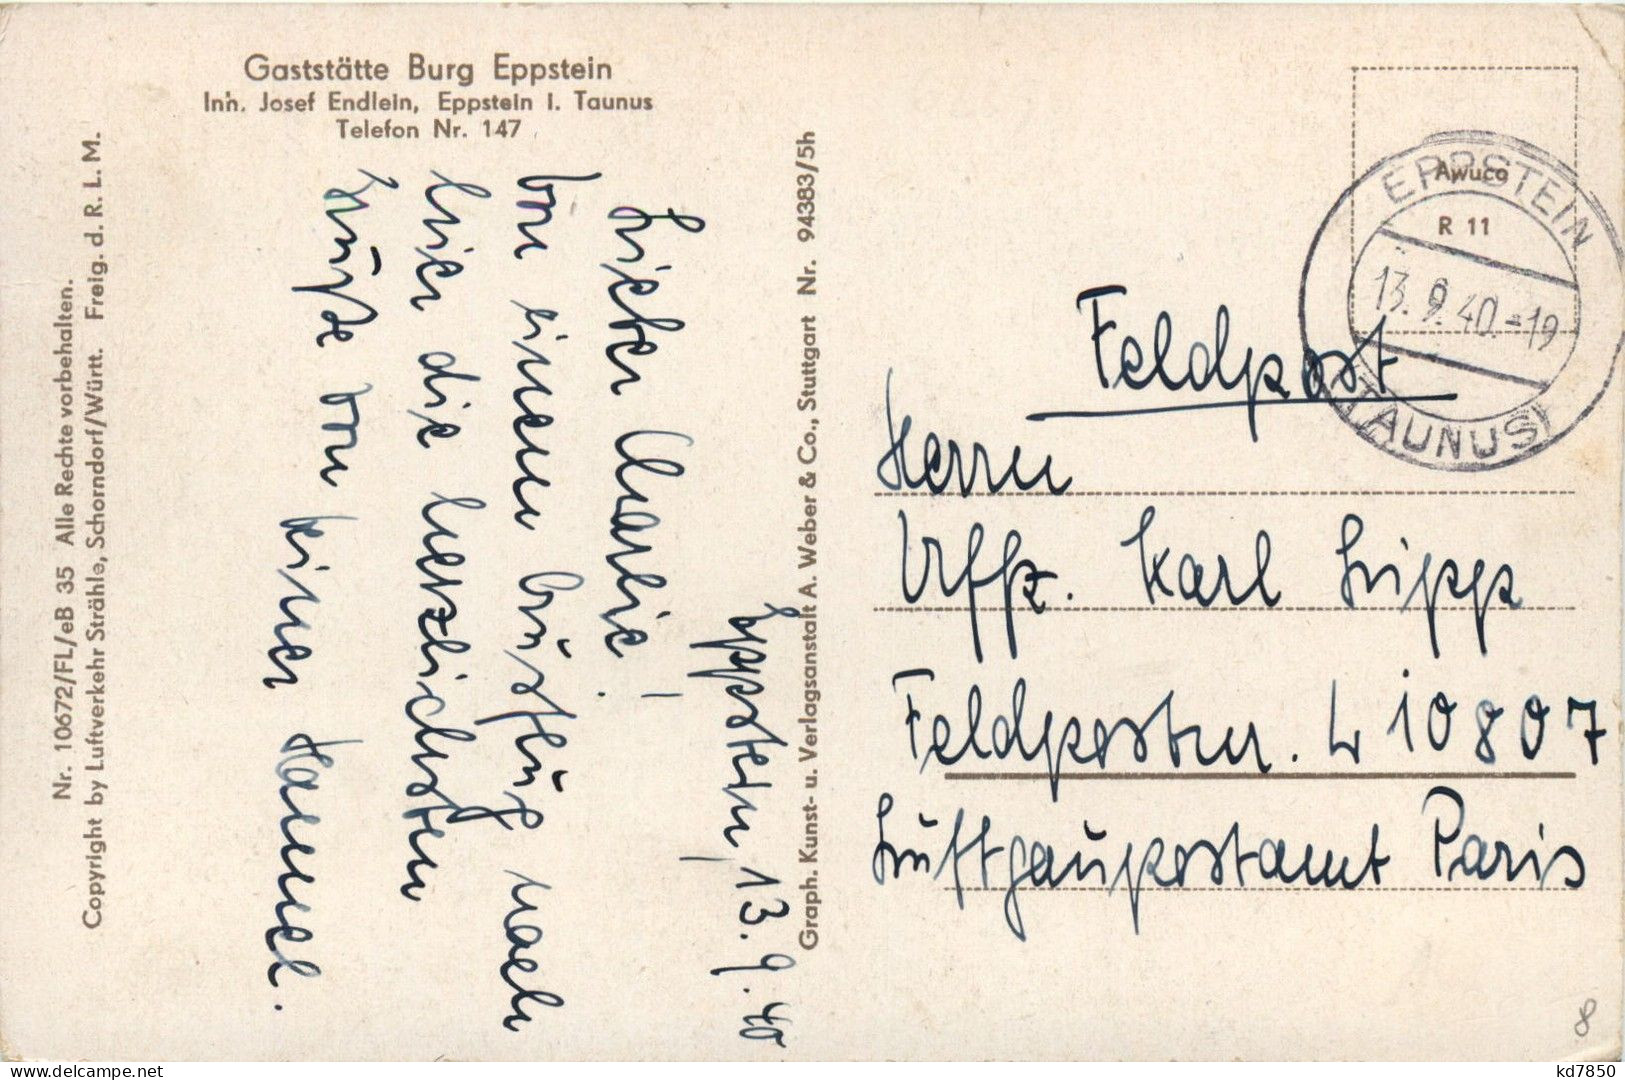 Gaststätte Burg Eppstein
Inh. Josef Endlein, Eppstein i. Taunus
Telefon Nr. 147
Nr. 10672/FL/eB 35 Alle Rechte vorbehalten.
Copyright by Luftverkehr Strähle, Schorndorf/Württ. Freig. d. R. L. M.
Eppstein, 13. 9. 40
Lieber
von einem Ausflug nach
hier die herzlichsten
Grüße von
Graph. Kunst- u. Verlagsanstalt A. Weber & Co., Stuttgart Nr. 94383/5h
Awuco
R 11
EPPSTEIN
13. 9. 40. - 19
(TAUNUS)
Feldpost
Herrn
Uffz. Karl Lipp
Feldpostnr. L 10807
Luftgaupostamt Paris
8
kd7850